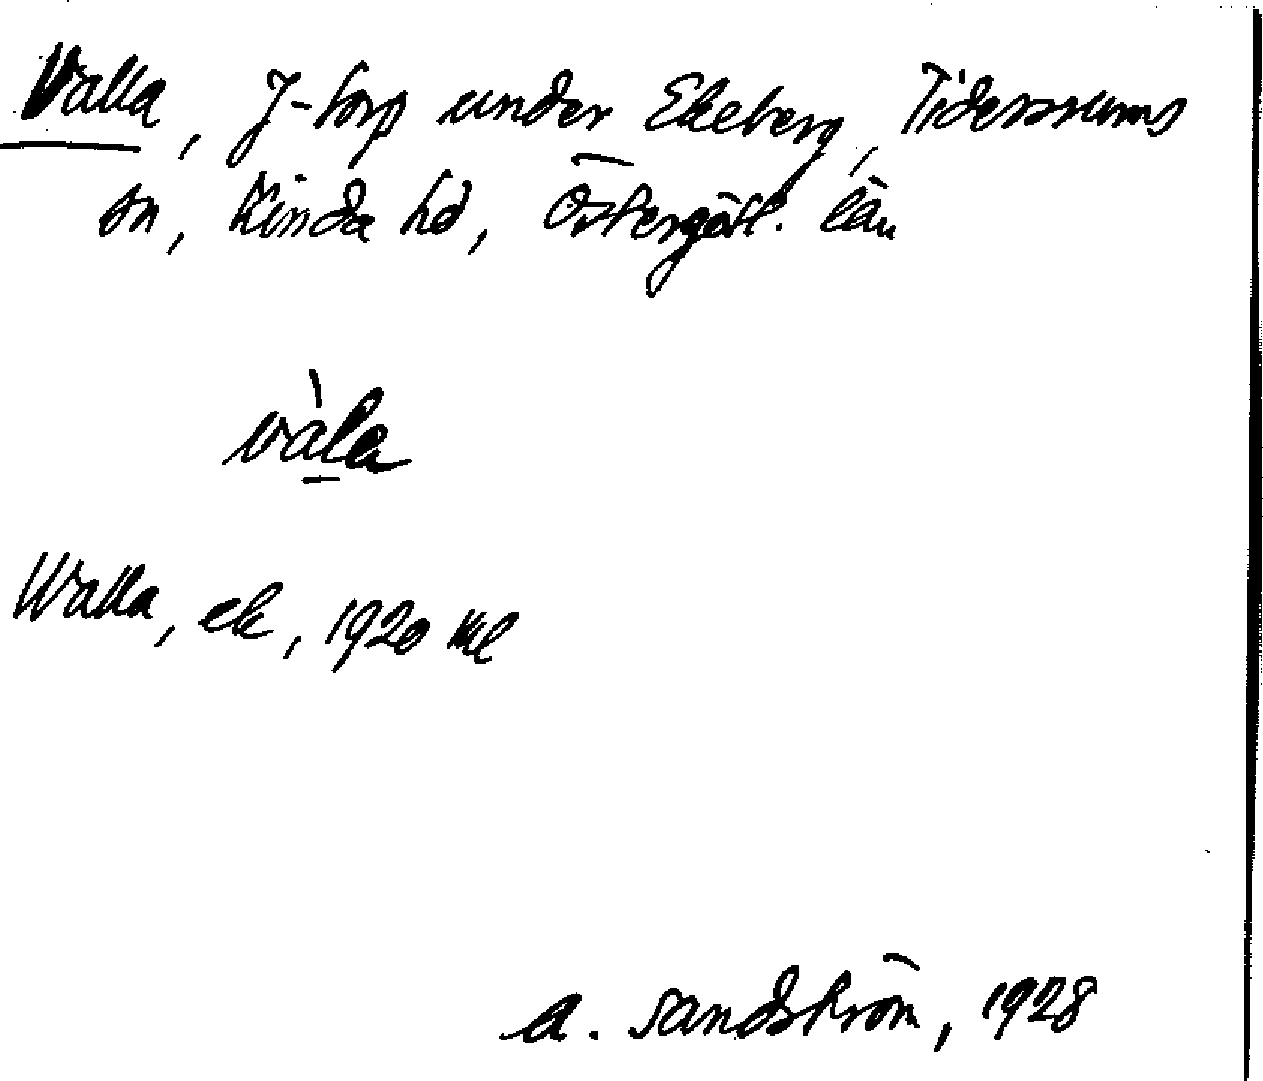 Valla, J-torp under Ekeberg, Tidersrums
sn, Kinda hd, Östergötl. län
vàla
Walla, ek, 1920 Ml
A. Sandström, 1928